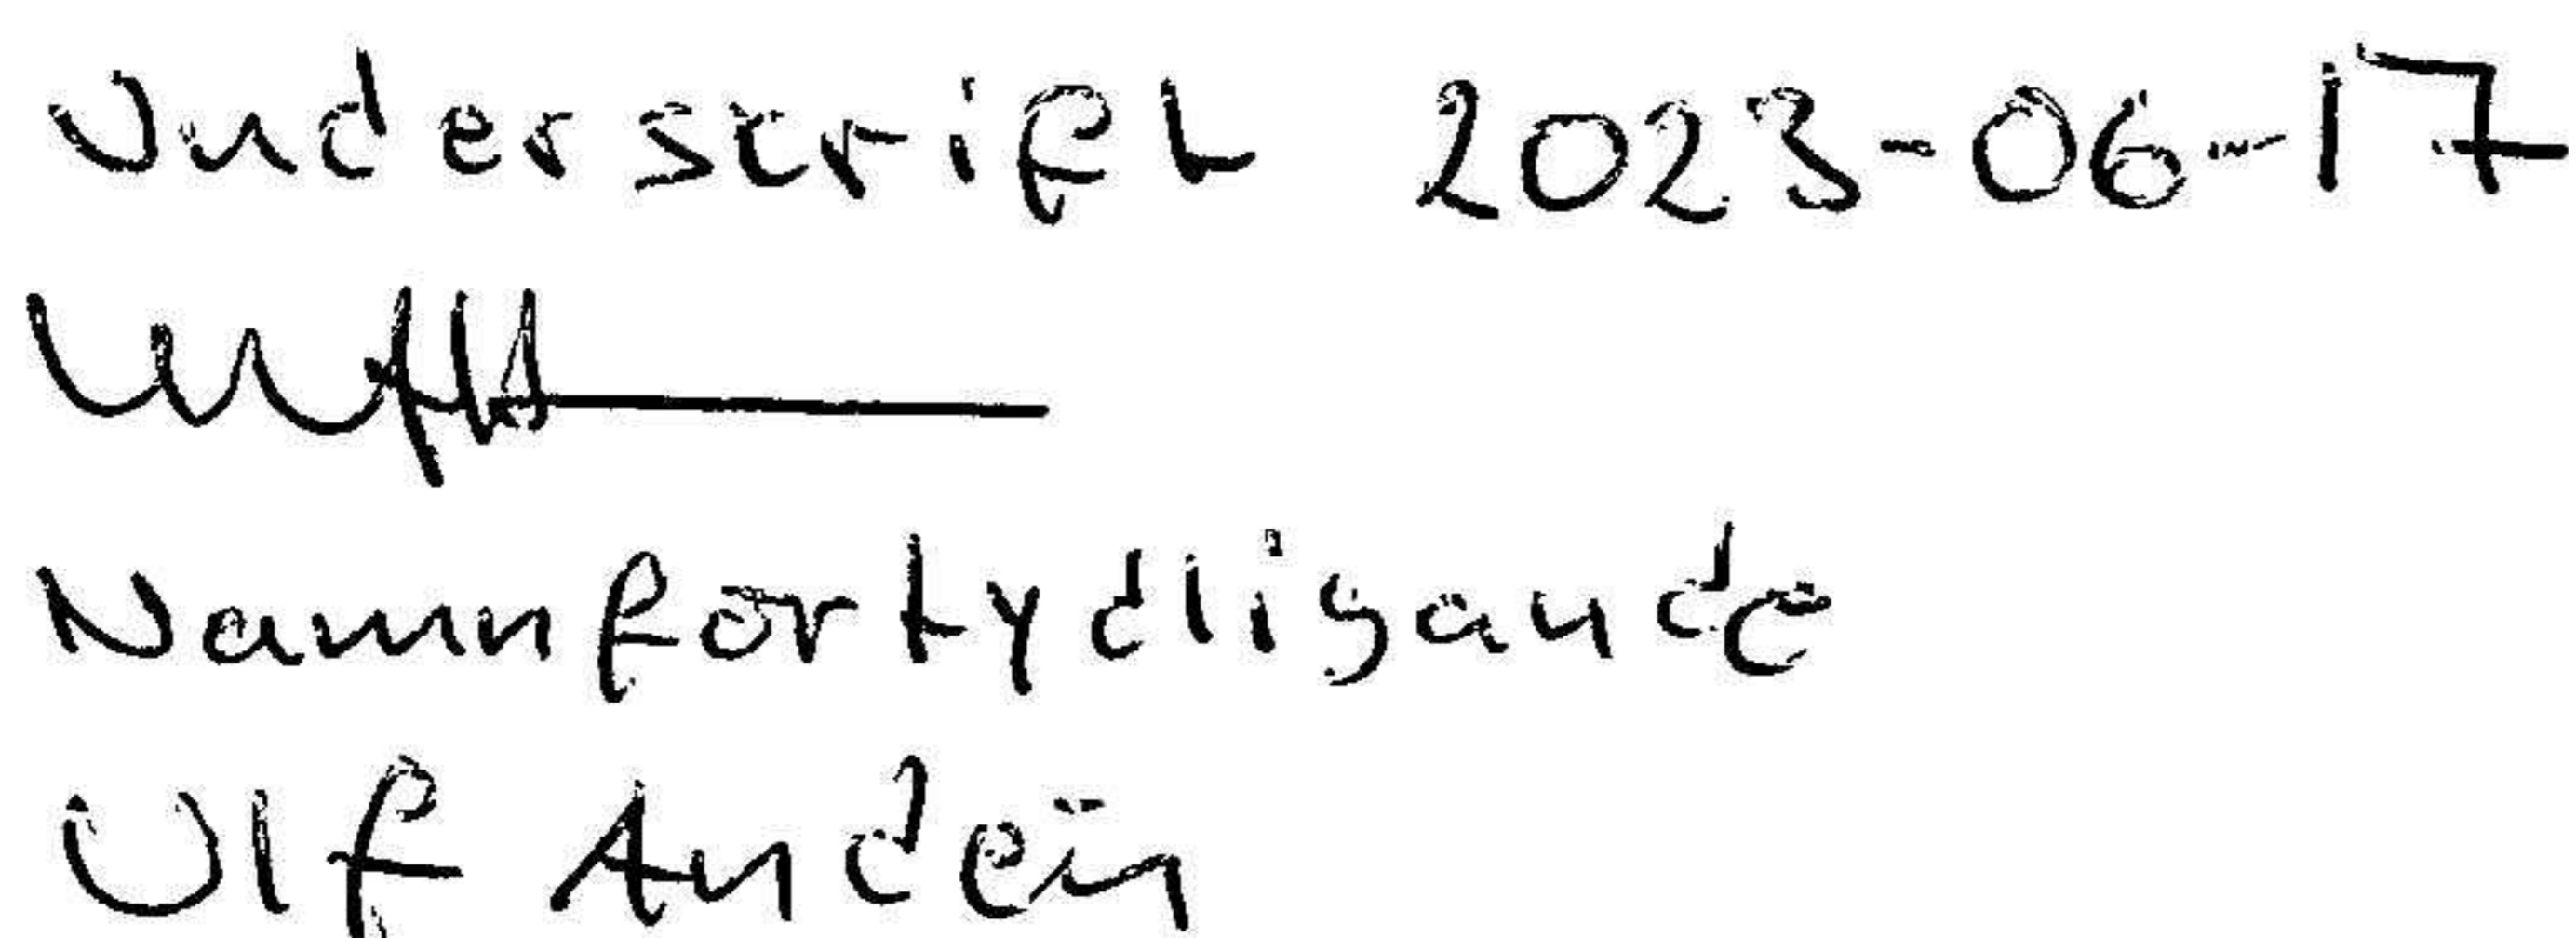 Underskrift 2023-06-17
Namnförtydligande
Ulf